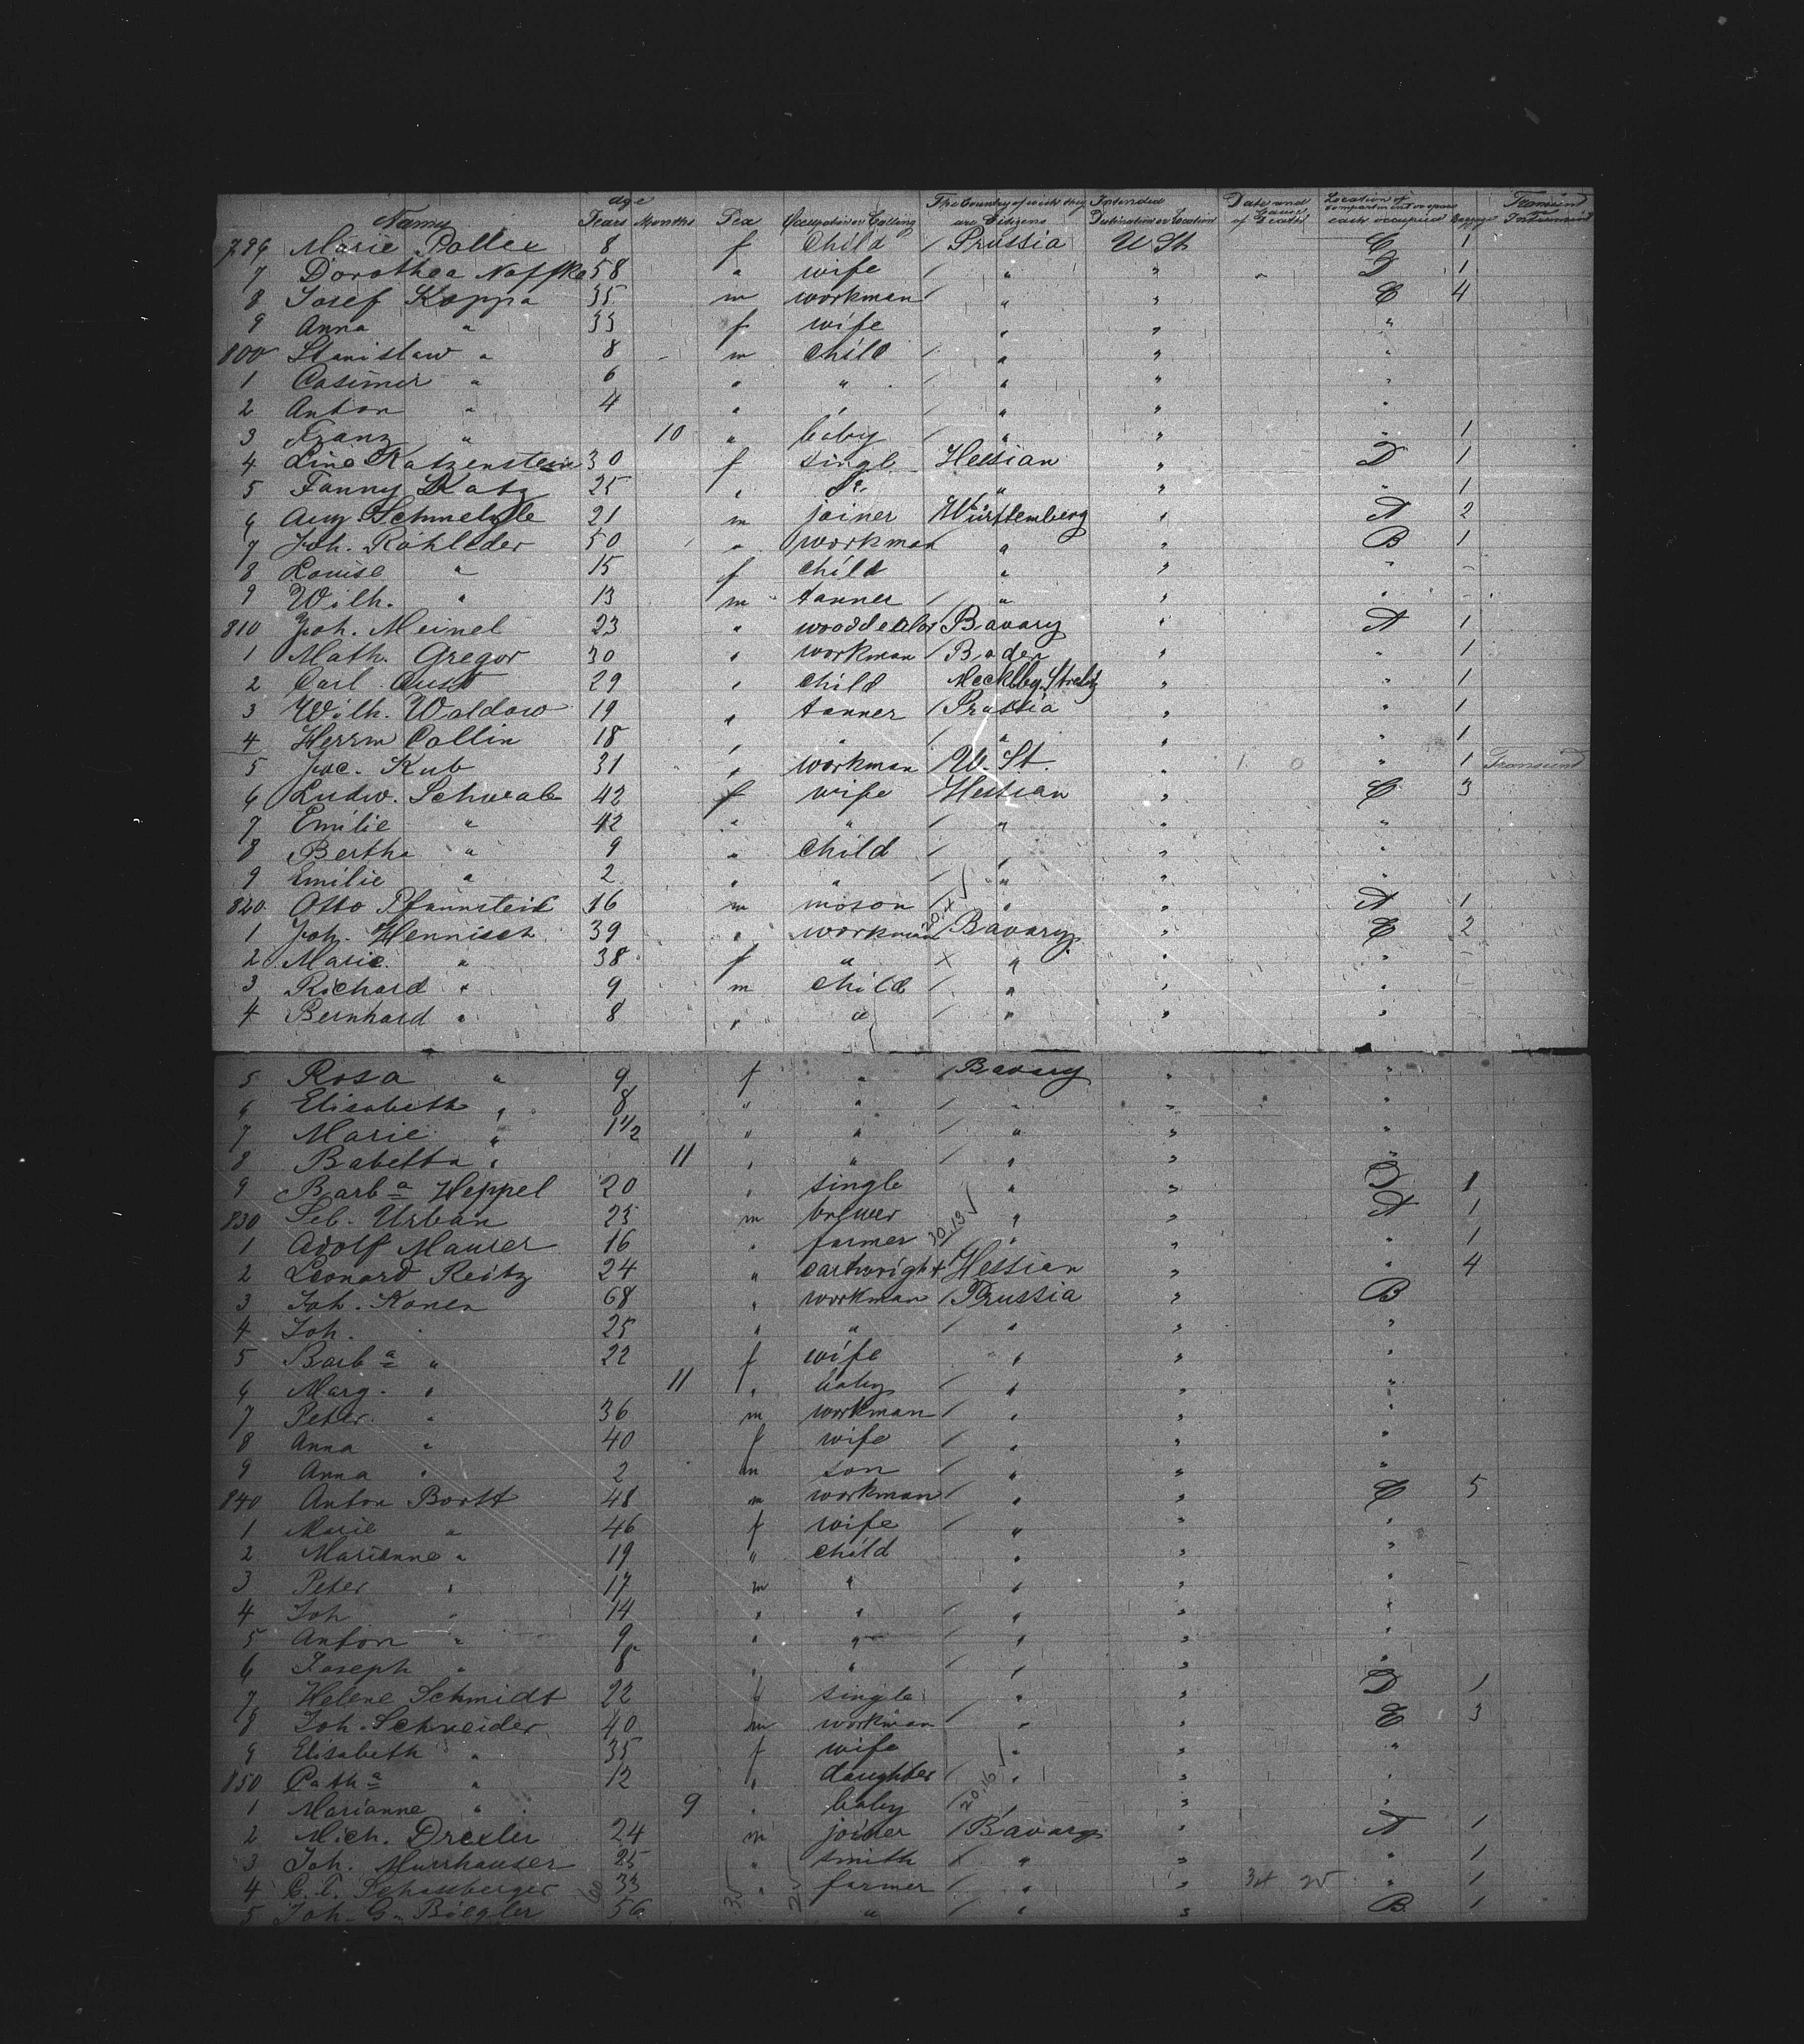 Names age Years Months Sex Occupation or Calling The Country of which they are Citizens Intended Destination or Location Date and Cause of Death Location of compartment or space each occupied Baggage Transient
796 Marie 8 f child / Prussia U St C 1
7 Dorothea Naffke 58 " wife / " " D 1
8 Josef Koppa 35 m workman / " " C 4
9 Anna " 33 f wife " " "
800 Stanislaw " 8 m child / " " "
1 Casimer " 6 " " / " " "
2 Anton " 4 " " / " " "
3 Franz " 10 " baby / " " " 1
4 Lina Katzenstein 30 f singl Hessian " D 1
5 Fanny Katz 25 " do " " " 1
6 Aug. Schmelzle 21 m joiner Württemberg " A 2
7 Joh. Rohleder 50 " workman " " B 1
8 Louise " 15 f child " " " -
9 Wilh. " 13 m tanner / " " " -
810 Joh. Meinel 23 " Bavary " A 1
1 Math. Gregor 30 " workman / Baden " " 1
2 Carl Cust 29 " child Mecklbg. Strelitz " " 1
3 Wilh. Waldow 19 " tanner / Prussia " " 1
4 Herrm Collin 18 " " / " " " 1
5 Jac. Kub 31 " workman / U. St. " " 1 Transient
6 Ludw. Schwab 42 f wife Hessian " C 3
7 Emilie " 42 " " / " " "
8 Bertha " 9 " child / " " "
9 Emilie " 2 " " / " " "
820 Otto Pfannsteil 16 m mason / " " A 1
1 Joh. Hennisch 39 " workman Bavary " C 2
2 Marie " 38 f " X " " " -
3 Richard " 9 m child / " " " -
4 Bernhard " 8 " " / " " "
5 Rosa " 9 f " / Bavary " "
6 Elisabeth " 8 " " / " " "
7 Marie " 1 1/2 " " / " " "
8 Babetta " 11 " " / " " "
9 Barba Heppel 20 " single " " D 1
830 Seb. Urban 25 m brewer " " A 1
1 Adolf Maurer 16 " farmer " " " 1
2 Leonard Reitz 24 " cartwright Hessian " " 4
3 Joh. Konen 68 " workman / Prussia " B
4 Joh. " 25 " " / " " "
5 Barba " 22 f wife " " "
6 Marg. " 11 " baby / " " "
7 Peter " 36 m workman / " " "
8 Anna " 40 f wife / " " "
9 Anna " 2 m son / " " "
840 Anton Bortt 48 m workman / " " C 5
1 Marie " 46 f wife / " " "
2 Marianne " 19 " child " " "
3 Peter " 17 m " " " "
4 Joh " 14 " " / " " "
5 Anton " 9 " " / " " "
6 Joseph " 8 " " / " " "
7 Helene Schmidt 22 f single / " " D 1
8 Joh. Schneider 40 m workman " " C 3
9 Elisabeth " 35 f wife " " "
850 Catha " 12 " daughter " " "
1 Marianne " 9 " baby / " " "
2 Mich. Drexler 24 m joiner / Bavary " A 1
3 Joh. Murrhauser 25 " smith X " " " 1
4 33 " farmer / " " " 1
5 Joh. G. Biegler 56 " / " " B 1